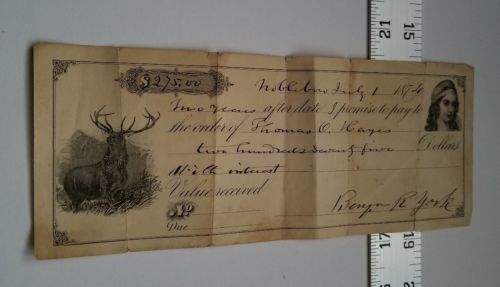 $275.00
Nobleboro July 1 1874
Two years after date I promise to pay to
the order of Thomas O. Hayes
two hundred seventy five Dollars
With interest
Value received
No
Due
Benjn R York
21
20
16
15